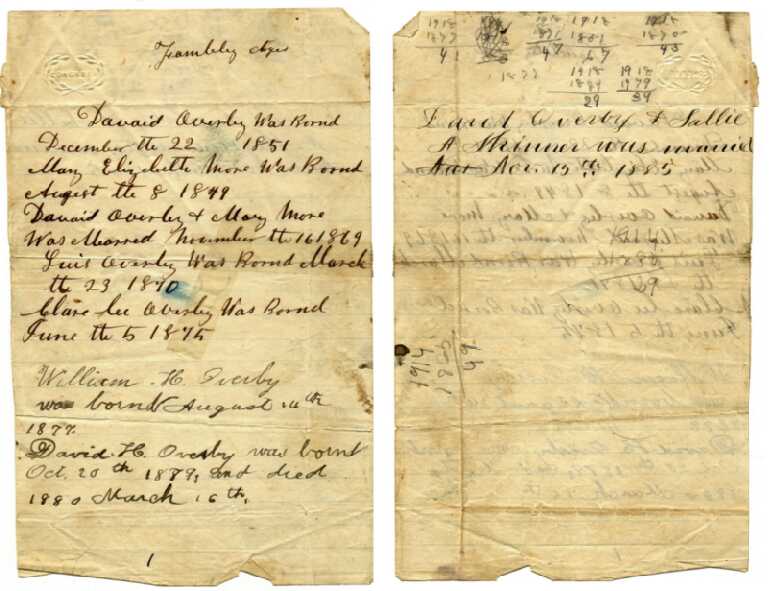 Fambley Ages
CONGRESS
Davaid Overley Was Bornd
December the 22 1851
Mary Elizebeth More Was Bornd
August the 8 1849
Davaid Overley & Mary More
Was Marred November the 16 1869
Overley Was Bornd March
the 23 1870
Clare lee Overley Was Bornd
June the 5 1875
William H. Overby
was bornd August 11th
1877.
David H. Overby was bornt
Oct. 20th 1879, and died
1880 March 16th,
1
1918 1918 1918 1918
1877 1871 1851 1870
41 47 67 43
1877 1918 1918
1889 1979
29 39
David Overby & Sallie
A Skinner was maried
Nov 15th 1885
1914
1865
49